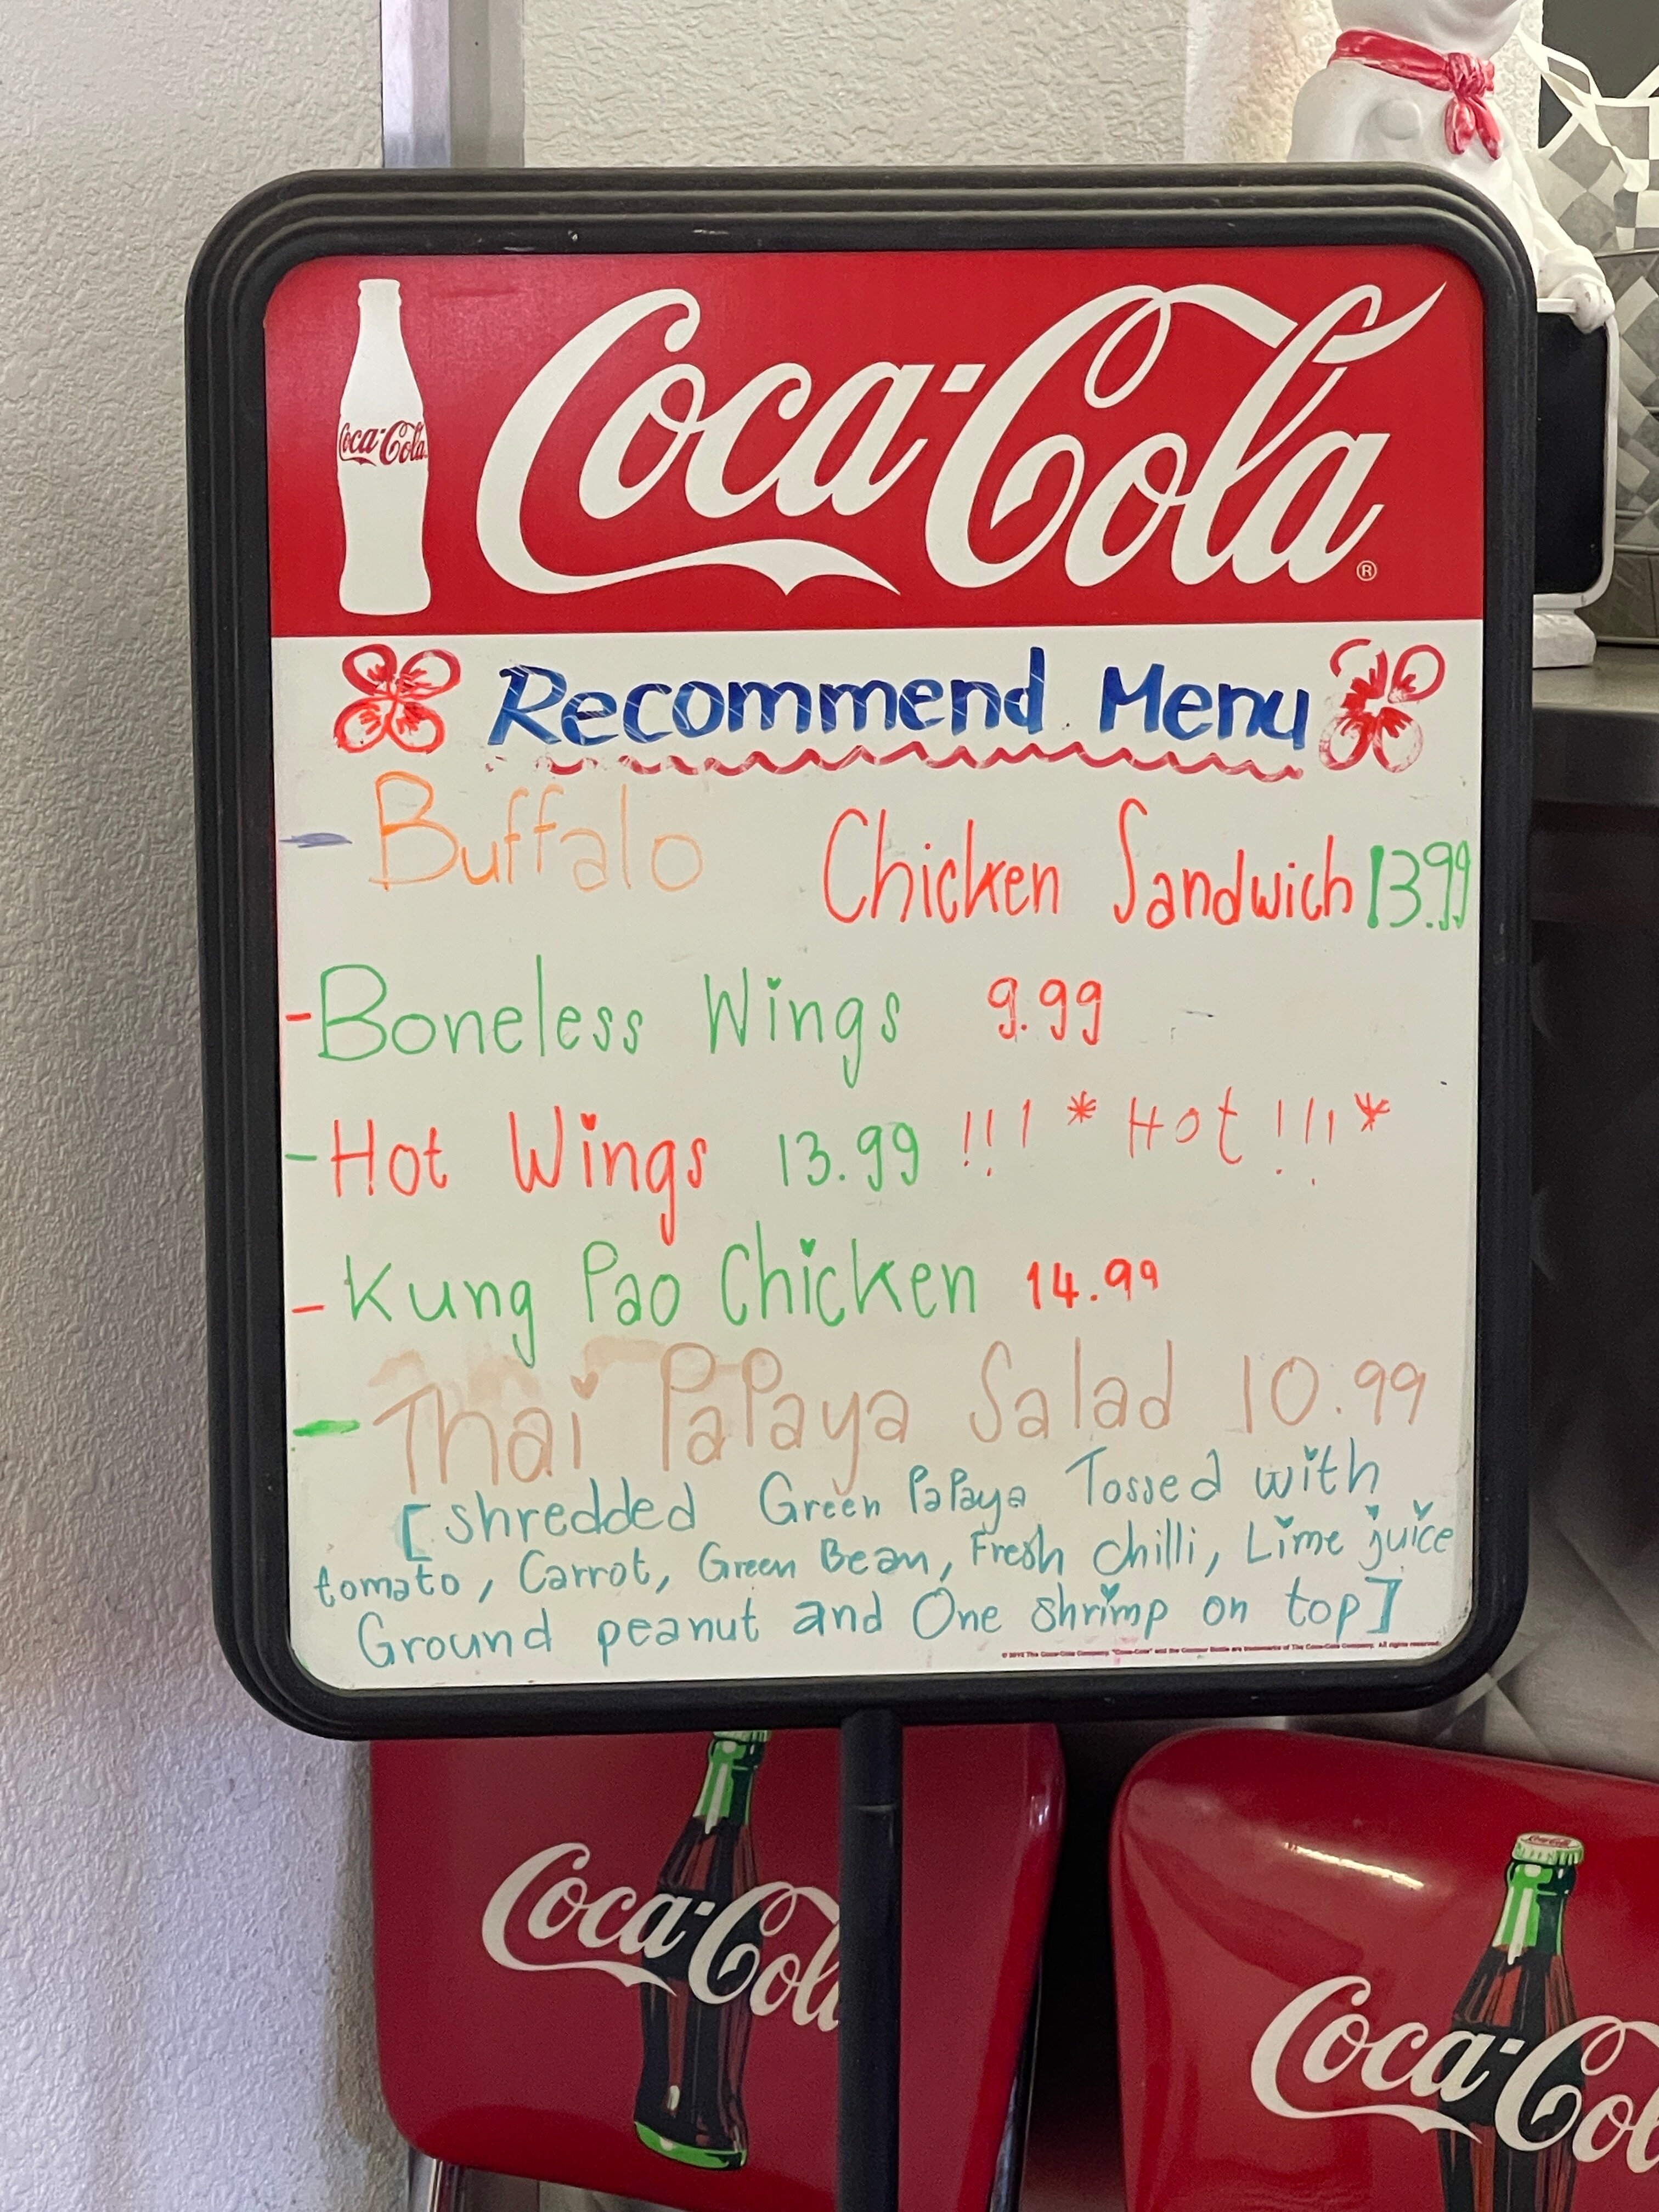 Coca-Cola
Coca-Cola®
Recommend Menu
- Buffalo Chicken Sandwich 13.99
- Boneless Wings 9.99
- Hot Wings 13.99 !!! * Hot !!! *
- Kung Pao Chicken 14.99
- Thai PaPaya Salad 10.99
[shredded Green PaPaya Tossed with
tomato, Carrot, Green Bean, Fresh chilli, Lime juice
Ground peanut and One shrimp on top]
Coca-Cola
Coca-Co